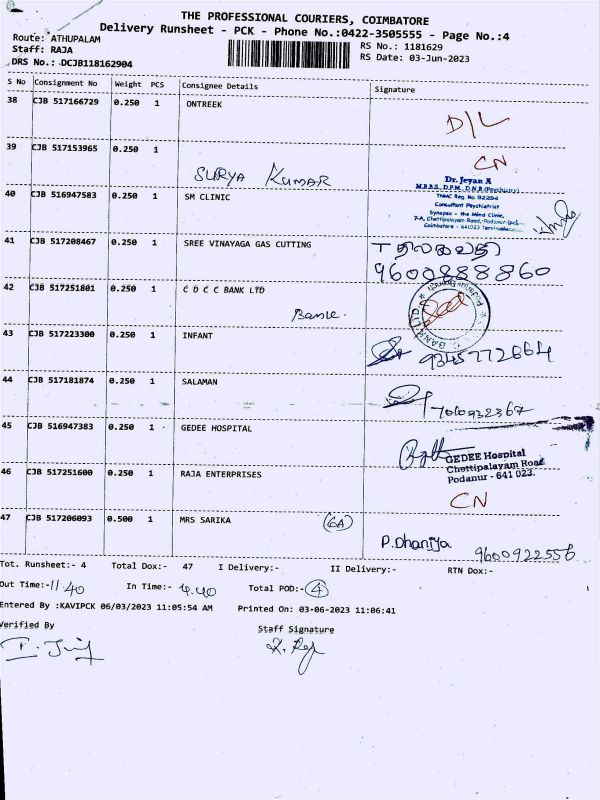 THE PROFESSIONAL COURIERS, COIMBATORE
Delivery Runsheet - PCK - Phone No.:0422-3505555 - Page No.:4
Route: ATHUPALAM
RS No.: 1181629
Staff: RAJA
RS Date: 03-Jun-2023
DRS No.: DCJB118162904
S No Consignment No Weight PCS Consignee Details Signature
38 CJB 517166729 0.250 1 ONTREEK
D/L
39 CJB 517153965 0.250 1
CN
SURYA KUMAR
Dr. Jeyan A
M.B.B.S., D.P.M., D.N.B (Psychiatry)
40 CJB 516947583 0.250 1 SM CLINIC
TNMC Reg. No 92294
Consultant Psychiatrist
Synapse - the Mind Clinic,
7-A, Chettipalayam Road, Podanur
Coimbatore - 641023
41 CJB 517208467 0.250 1 SREE VINAYAGA GAS CUTTING
9600888860
42 CJB 517251801 0.250 1 C D C C BANK LTD
43 CJB 517223300 0.250 1 INFANT
9345772664
44 CJB 517181874 0.250 1 SALAMAN
7010932367
45 CJB 516947383 0.250 1 GEDEE HOSPITAL
GEDEE Hospital
Chettipalayam Road
Podanur - 641 023.
46 CJB 517251600 0.250 1 RAJA ENTERPRISES
CN
47 CJB 517206093 0.500 1 MRS SARIKA (6A)
P.Dhaniya 9600922556
Tot. Runsheet:- 4 Total Dox:- 47 I Delivery:- II Delivery:- RTN Dox:-
Out Time:- 11.40 In Time:- 4.40 Total POD:- 4
Entered By :KAVIPCK 06/03/2023 11:05:54 AM Printed On: 03-06-2023 11:06:41
Verified By Staff Signature